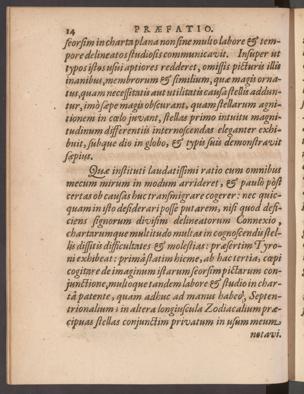 14 PRÆFATIO.
seorsim in charta plana non sine multo labore & tem-
pore delineatos studiosis communicavit. Insuper ut
typos istos usui aptiores redderet, omissis picturis illis
inanibus, membrorum & similium, quæ magis orna-
tus, quam necessitatis aut utilitatis causâ stellis addun-
tur, imò sæpe magis obscurant, quam stellarum agni-
tionem in cœlo juvant, stellas primo intuitu magni-
tudinum differentiis internoscendas eleganter exhi-
buit, subque dio in globo, & typis suis demonstravit
sæpius.
Quæ instituti laudatissimi ratio cum omnibus
mecum mirum in modum arrideret, & paulò pòst
certas ob causas huc transmigrare cogerer: nec quic-
quam in isto desiderari posse putarem, nisi quod defi-
ciens signorum divisim delineatorum Connexio,
chartarumque multitudo multas in cognoscendis stel-
lis dissitis difficultates & molestias: præsertim Tyro-
ni exhibeat: primâ statim hieme, ab hac tertia, cœpi
cogitare de imaginum istarum seorsim pictarum con-
junctione, multoque tandem labore & studio in char-
tâ patente, quam adhuc ad manus habeo, Septen-
trionalium: in altera longiuscula Zodiacalium præ-
cipuas stellas conjunctim privatum in usum meum
notavi.